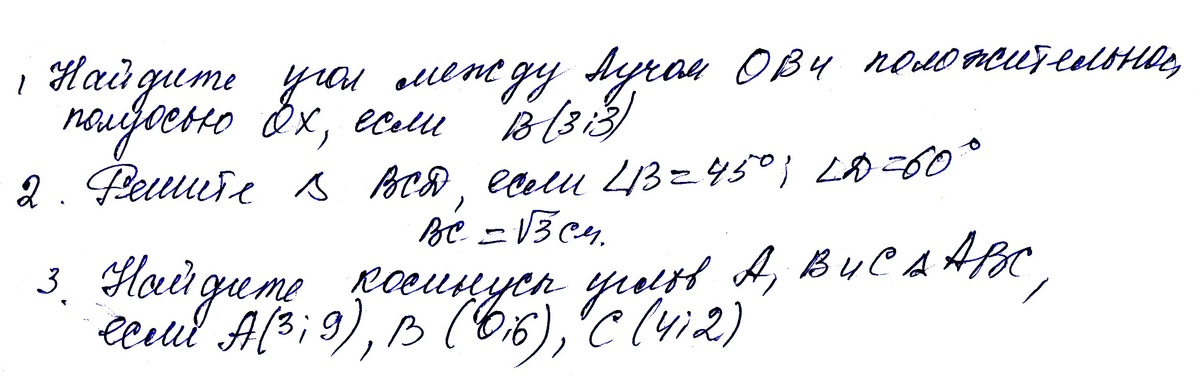 1 Найдите угол между лучом ОВ и положительной
полуосью ОХ, если В(3;3)
2. Решите Δ ВСД, если ∠В=45°; ∠Д=60°
ВС = √3 см.
3. Найдите косинусы углов А, В и С Δ АВС,
если А(3;9), В (0;6), С (4;2)